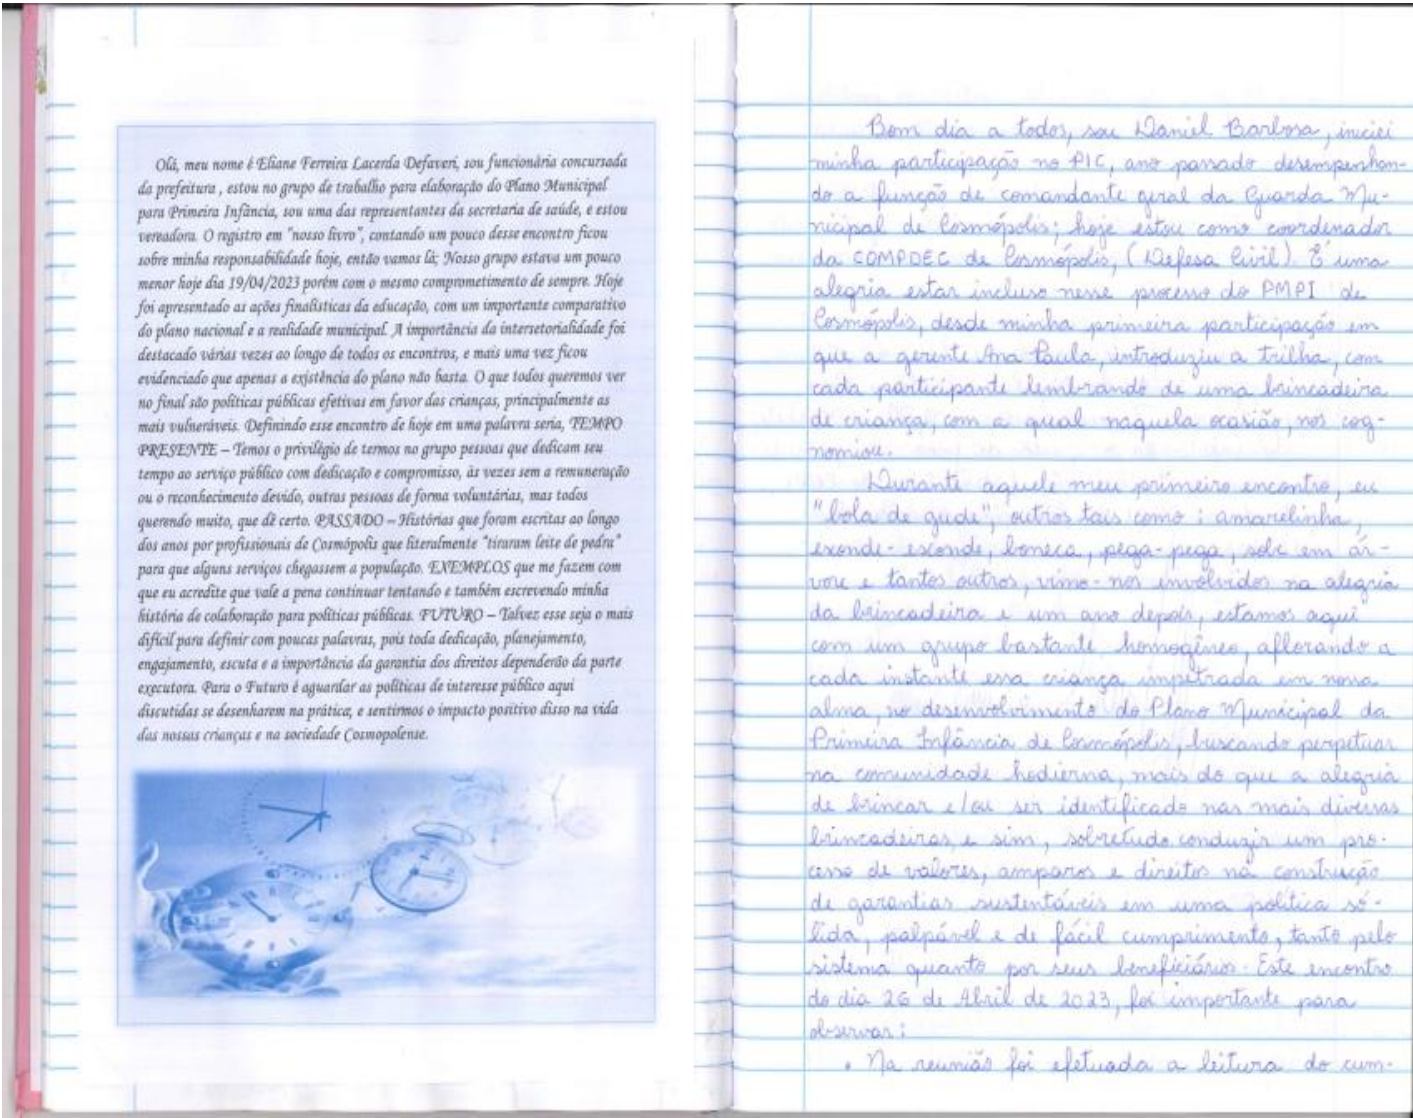 Olá, meu nome é Eliane Ferreira Lacerda Defaveri, sou funcionária concursada
da prefeitura , estou no grupo de trabalho para elaboração do Plano Municipal
para Primeira Infância, sou uma das representantes da secretaria de saúde, e estou
vereadora. O registro em "nosso livro", contando um pouco desse encontro ficou
sobre minha responsabilidade hoje, então vamos lá; Nosso grupo estava um pouco
menor hoje dia 19/04/2023 porém com o mesmo comprometimento de sempre. Hoje
foi apresentado as ações finalísticas da educação, com um importante comparativo
do plano nacional e a realidade municipal. A importância da intersetorialidade foi
destacado várias vezes ao longo de todos os encontros, e mais uma vez ficou
evidenciado que apenas a existência do plano não basta. O que todos queremos ver
no final são políticas públicas efetivas em favor das crianças, principalmente as
mais vulneráveis. Definindo esse encontro de hoje em uma palavra seria, TEMPO
PRESENTE – Temos o privilégio de termos no grupo pessoas que dedicam seu
tempo ao serviço público com dedicação e compromisso, às vezes sem a remuneração
ou o reconhecimento devido, outras pessoas de forma voluntárias, mas todos
querendo muito, que dê certo. PASSADO – Histórias que foram escritas ao longo
dos anos por profissionais de Cosmópolis que literalmente "tiraram leite de pedra"
para que alguns serviços chegassem a população. EXEMPLOS que me fazem com
que eu acredite que vale a pena continuar tentando e também escrevendo minha
história de colaboração para políticas públicas. FUTURO – Talvez esse seja o mais
difícil para definir com poucas palavras, pois toda dedicação, planejamento,
engajamento, escuta e a importância da garantia dos direitos dependerão da parte
executora. Para o Futuro é aguardar as políticas de interesse público aqui
discutidas se desenharem na prática, e sentirmos o impacto positivo disso na vida
das nossas crianças e na sociedade Cosmopolense.
Bom dia a todos, sou Daniel Barbosa, iniciei
minha participação no PIC, ano passado desempenhan-
do a função de comandante geral da Guarda Mu-
nicipal de Cosmópolis; hoje estou como coordenador
da COMPDEC de Cosmópolis, (Defesa Civil). É uma
alegria estar incluso nesse processo do PMPI de
Cosmópolis, desde minha primeira participação em
que a gerente Ana Paula, introduziu a trilha, com
cada participante lembrando de uma brincadeira
de criança, com a qual naquela ocasião, nos cog-
nomiou.
Durante aquele meu primeiro encontro, eu
"bola de gude", outros tais como: amarelinha,
esconde-esconde, boneca, pega-pega, sobe em ár-
vore e tantos outros, vimo-nos envolvidos na alegria
da brincadeira e um ano depois, estamos aqui
com um grupo bastante homogêneo, aflorando a
cada instante essa criança impetrada em nossa
alma, no desenvolvimento do Plano Municipal da
Primeira Infância de Cosmópolis, buscando perpetuar
na comunidade hodierna, mais do que a alegria
de brincar e/ou ser identificado nas mais diversas
brincadeiras, e sim, sobretudo conduzir um pro-
cesso de valores, amparos e direitos na construção
de garantias sustentáveis em uma política só-
lida, palpável e de fácil cumprimento, tanto pelo
sistema quanto por seus beneficiários. Este encontro
do dia 26 de Abril de 2023, foi importante para
observar:
• Na reunião foi efetuada a leitura do cum-